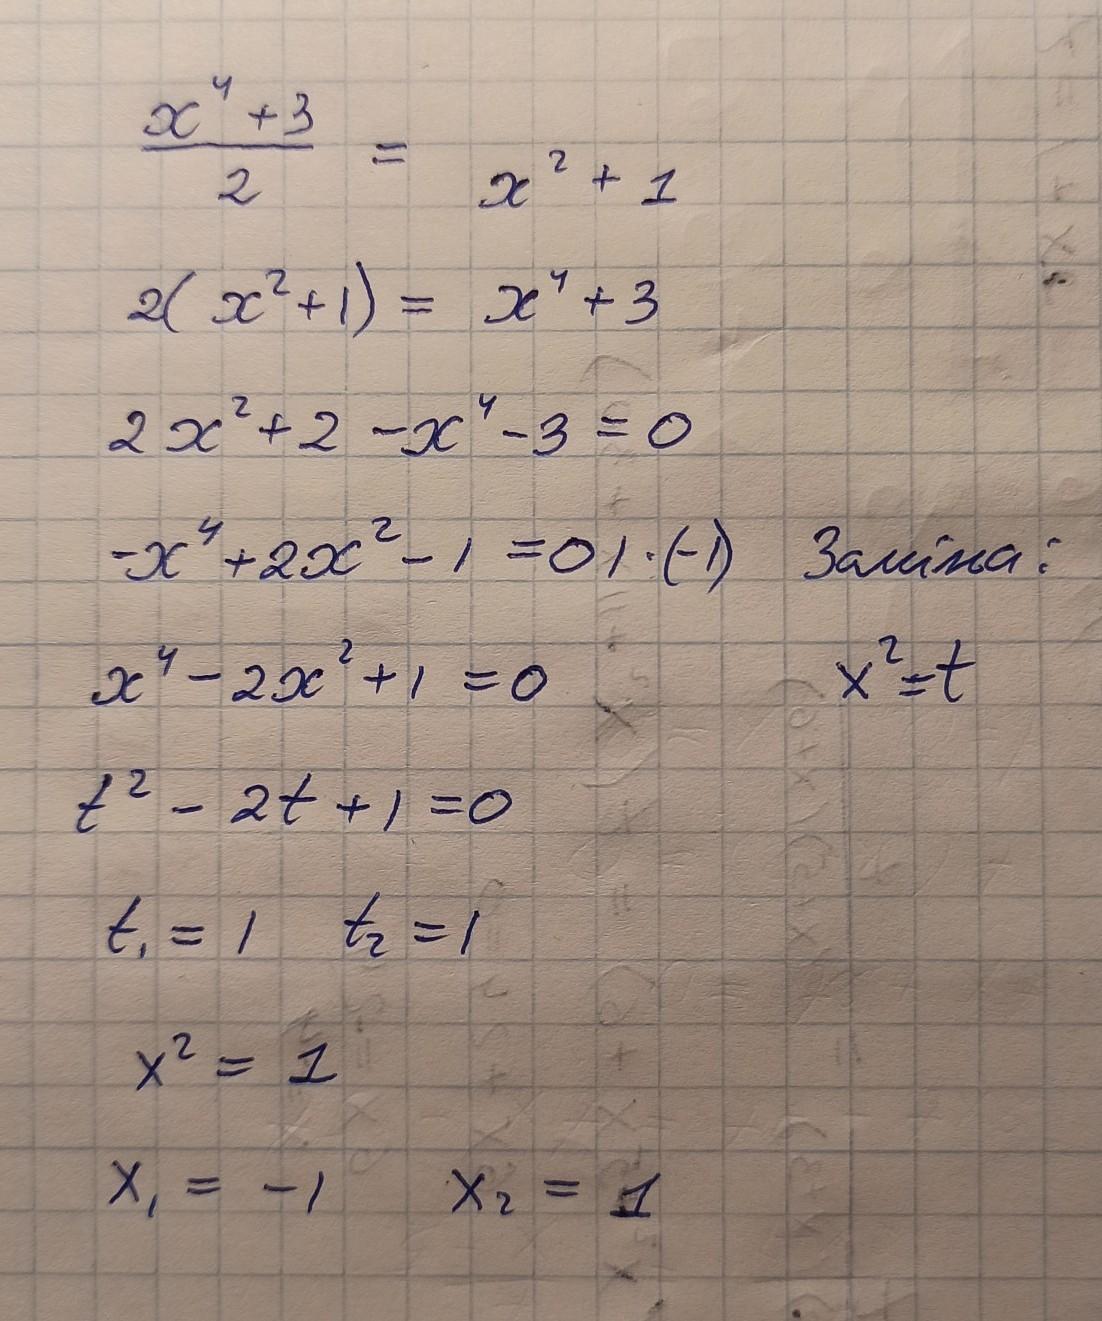 (x⁴+3)/2 = x²+1
2(x²+1) = x⁴+3
2x²+2-x⁴-3=0
-x⁴+2x²-1=0 |·(-1) Заміна:
x⁴-2x²+1=0 x²=t
t²-2t+1=0
t₁=1 t₂=1
x²=1
x₁=-1 x₂=1